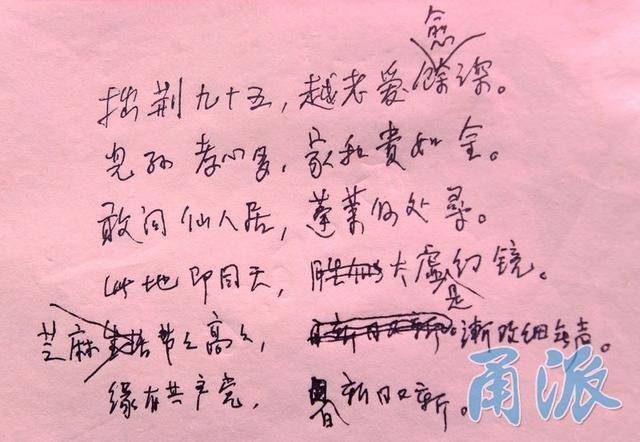 愈
拙荆九十五，越老爱馀深。
儿孙孝心多，家和貴如金。
敢问仙人居，蓬莱何处寻。
此地即洞天，胜如太虚幻镜。
是
芝麻节节高，渐改细无声。
缘有共产党，日新日又新。
甬派